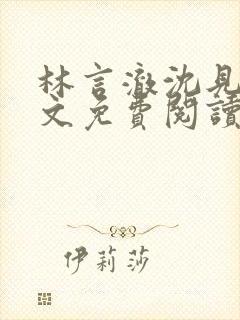 林言澈沈見
文免費閱讀
伊莉莎